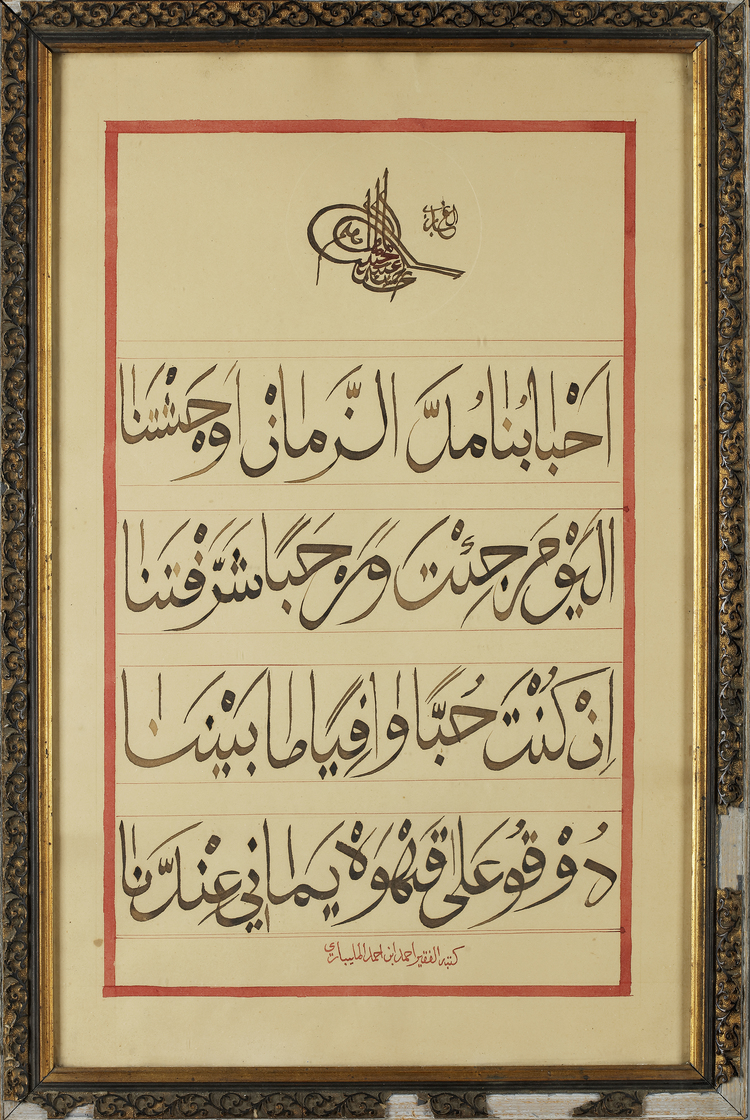 اَحْبابُنا مُدَّ الزَّمانْى اَوْحَشْتَنا
اليَوْمَ جِئْتَ وَمَرْحَبًا شَرَّفْتَنا
اِنْ كُنْتَ حُبًّا وافِيًا ما بَيْنَنا
دُوْقُوْ عَلى قَهْوَهْ يَماني عِنْدَنا
كتبه الفقير احمد ابن احمد المليباري